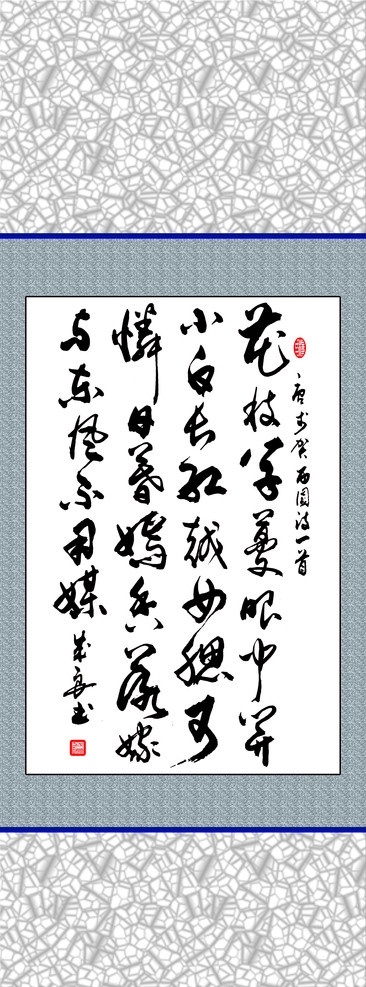 唐李贺南園诗一首
花枝草蔓眼中开
小白长红越女腮可
憐日暮嫣香落嫁
与东风不用媒
书